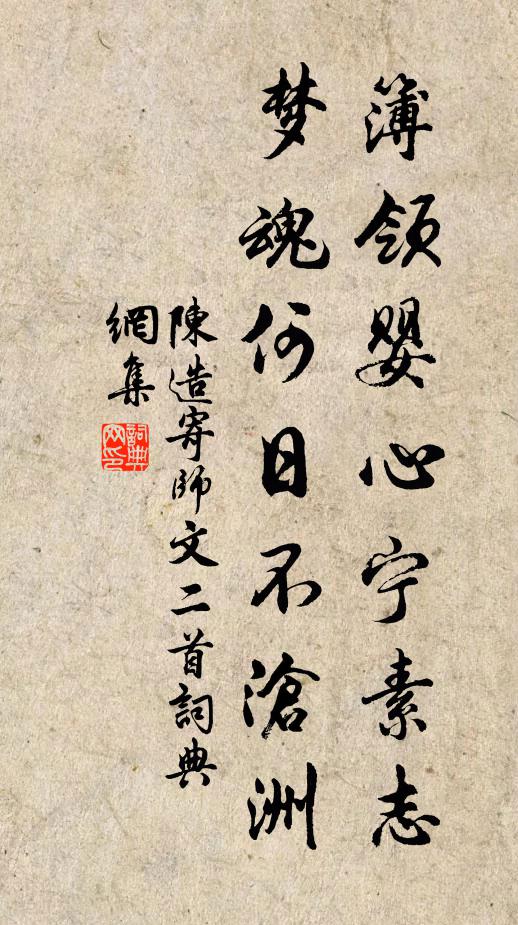 簿领婴心宁素志
梦魂何日不滄洲
陳造寄師文二首詞典
網集
詞典网印